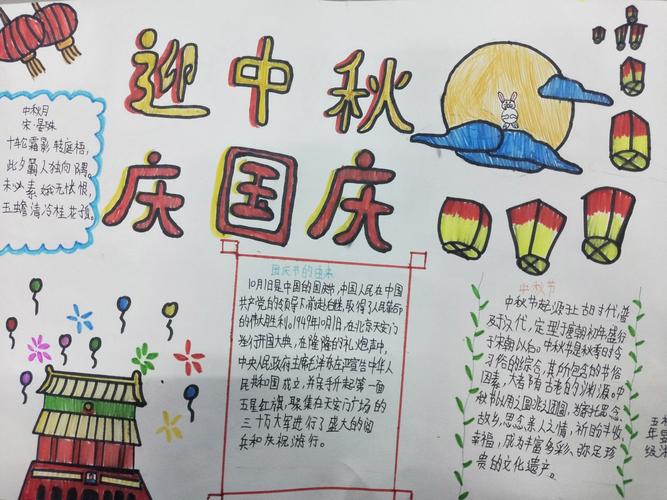 迎中秋
庆国庆
中秋月
宋·晏殊
十轮霜影转庭梧,
此夕羁人独向隅。
未必素娥无怅恨,
玉蟾清冷桂花孤。
国庆节的由来
10月1日是中国的国庆节,中国人民在中国
共产党的领导下,前赴后继,取得了人民革命
的伟大胜利。1949年10月1日,在北京天安门
举行开国大典,在隆隆的礼炮声中,
中央人民政府主席毛泽东庄严宣告中华人
民共和国成立,并亲手升起第一面
五星红旗,聚集在天安门广场的
三十万大军进行了盛大的阅
兵和庆祝游行。
中秋节
中秋节起源于上古时代,普
及于汉代,定型于唐朝初年,盛行
于宋朝以后。中秋节是秋季时令
习俗的综合,其所包含的节俗
因素,大都有古老的渊源。中
秋节以月之圆兆人之团圆,为寄托思念
故乡,思念亲人之情,祈盼丰收、
幸福,成为丰富多彩、弥足珍
贵的文化遗产。
五
年
级